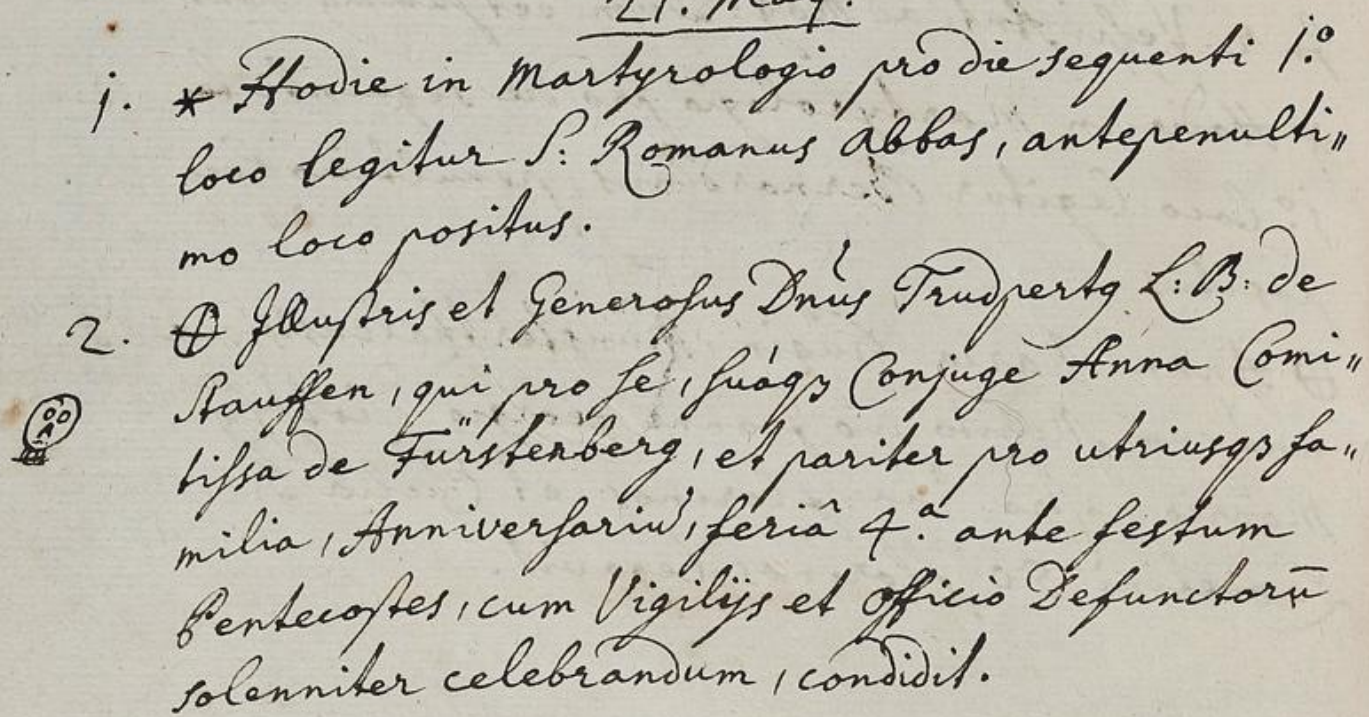 21. May.
1. * Hodie in Martyrologio pro die sequenti 1.º
loco legitur S: Romanus Abbas, antepenulti„
mo loco positus.
2. Illustris et Generosus Dnûs Trudpertꝯ L: B: de
Stauffen, qui pro se, suáqꝫ Conjuge Anna Comi„
tissa de Fürstenberg, et pariter pro utriusqꝫ fa„
milia, Anniversariu᷑, feriâ 4.ª ante festum
Pentecostes, cum Vigilijs et Officio Defunctorū
solenniter celebrandum, condidit.